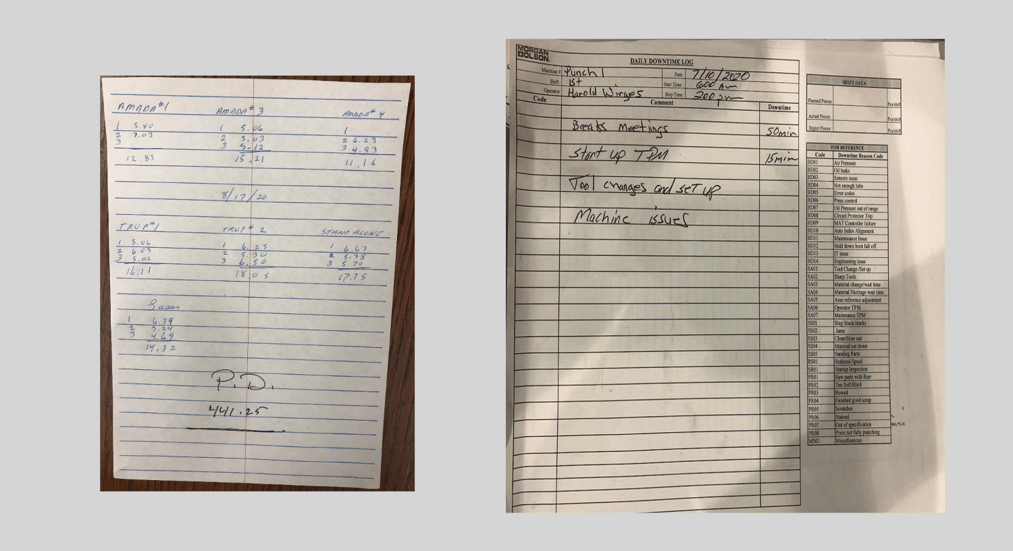 AMADA #1
AMADA # 3
AMADA # 4
1 5.80
2 7.03
3
12.83
1 5.06
2 5.03
3 5.12
15.21
1
2 6.23
3 4.93
11.16
8/17/20
TRUP #1
TRUP # 2
STAND ALONE
1 5.06
2 6.03
3 5.02
16.11
1 6.25
2 5.30
3 6.50
18.05
1 6.67
3 5.20
17.75
1 6.39
2 3.24
3 4.69
14.32
P.D.
441.25
MORGAN
OLSON
DAILY DOWNTIME LOG
Machine # Punch 1
Date 7/10/2020
Shift 1st
Start Time 600 Am
Operator Harold Winges
Stop Time 200 pm
Code
Comment
Downtime
Breaks Meetings
50min
Start up TPM
15min
Tool changes and set up
Machine issues
SHIFT DATA
Planned Pieces
Pcs/shift
Actual Pieces
Pcs/shift
Reject Pieces
Pcs/shift
FOR REFERENCE
Code Downtime Reason Code
BD01 Air Pressure
BD02 Oil leaks
BD03 Sensors issue
BD04 Not enough lube
BD05 Error codes
BD06 Press control
BD07 Oil Pressure out of range
BD08 Circuit Protector Trip
BD09 MAT Controller failure
BD10 Auto Index Alignment
BD11 Maintenance Issue
BD12 Hold down boot fall off
BD13 IT issue
BD14 Engineering issue
SA01 Tool Change /Set up
SA02 Sharp Tools
SA03 Material change/wait time
SA04 Material Shortage wait time
SA05 Axes reference adjustment
SA06 Operator TPM
SA07 Maintenance TPM
SS01 Slug Stuck/marks
SS02 Jams
SS03 Clean/blow out
SS04 Material cut down
SS05 Sanding Parts
RS01 Reduced Speed
SR01 Startup Inspection
PR01 Raw parts with Burr
PR02 Too Soft/Hard
PR03 Bowed
PR04 Finished good scrap
PR05 Scratches
PR06 Stained
PR07 Out of specification
PR08 Press not fully punching
MS01 Miscellaneous